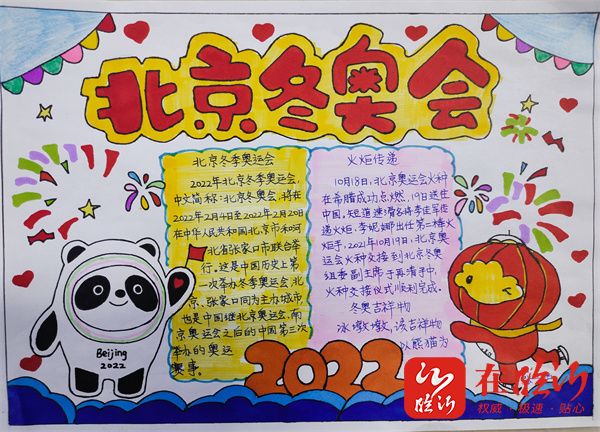 北京冬奥会
北京冬季奥运会
2022年北京冬季奥运会,
中文简称:北京冬奥会,将在
2022年2月4日至2022年2月20日
在中华人民共和国北京市和河
北省张家口市联合举
行。这是中国历史上第
一次举办冬季奥运会,北
京、张家口同为主办城市
也是中国继北京奥运会、南
京奥运会之后的中国第三次
举办的奥运
赛事。
火炬传递
10月18日,北京奥运会火种
在希腊成功点燃,19日送往
中国,短道速滑名将李佳军传
递火炬,李妮娜出任第二棒火
炬手,2021年10月19日,北京奥
运会火种交接到北京冬奥
组委副主席于再清手中,
火种交接仪式顺利完成。
冬奥吉祥物
冰墩墩,该吉祥物
以熊猫为
Beijing
2022
2022
在临沂
临沂
权威·极速·贴心